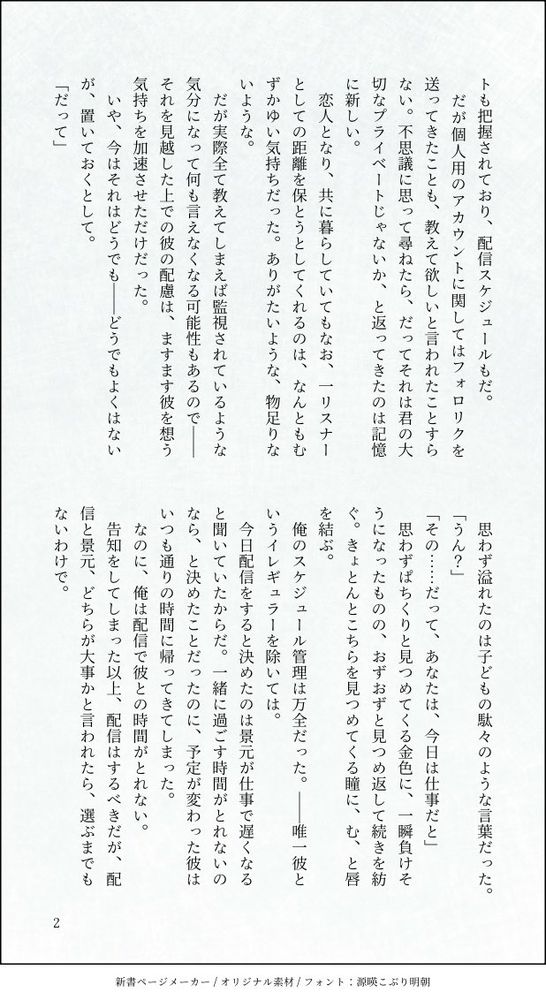 トも把握されており、配信スケジュールもだ。
だが個人用のアカウントに関してはフォロリクを
送ってきたことも、教えて欲しいと言われたことすら
ない。不思議に思って尋ねたら、だってそれは君の大
切なプライベートじゃないか、と返ってきたのは記憶
に新しい。
恋人となり、共に暮らしていてもなお、一リスナー
としての距離を保とうとしてくれるのは、なんともむ
ずかゆい気持ちだった。ありがたいような、物足りな
いような。
だが実際全て教えてしまえば監視されているような
気分になって何も言えなくなる可能性もあるので――
それを見越した上での彼の配慮は、ますます彼を想う
気持ちを加速させただけだった。
いや、今はそれはどうでも――どうでもよくはない
が、置いておくとして。
「だって」
思わず溢れたのは子どもの駄々のような言葉だった。
「うん？」
「その……だって、あなたは、今日は仕事だと」
思わずぱちくりと見つめてくる金色に、一瞬負けそ
うになったものの、おずおずと見つめ返して続きを紡
ぐ。きょとんとこちらを見つめてくる瞳に、む、と唇
を結ぶ。
俺のスケジュール管理は万全だった。――唯一彼と
いうイレギュラーを除いては。
今日配信をすると決めたのは景元が仕事で遅くなる
と聞いていたからだ。一緒に過ごす時間がとれないの
なら、と決めたことだったのに、予定が変わった彼は
いつも通りの時間に帰ってきてしまった。
なのに、俺は配信で彼との時間がとれない。
告知をしてしまった以上、配信はするべきだが、配
信と景元、どちらが大事かと言われたら、選ぶまでも
ないわけで。
2
新書ページメーカー / オリジナル素材 / フォント：源暎こぶり明朝